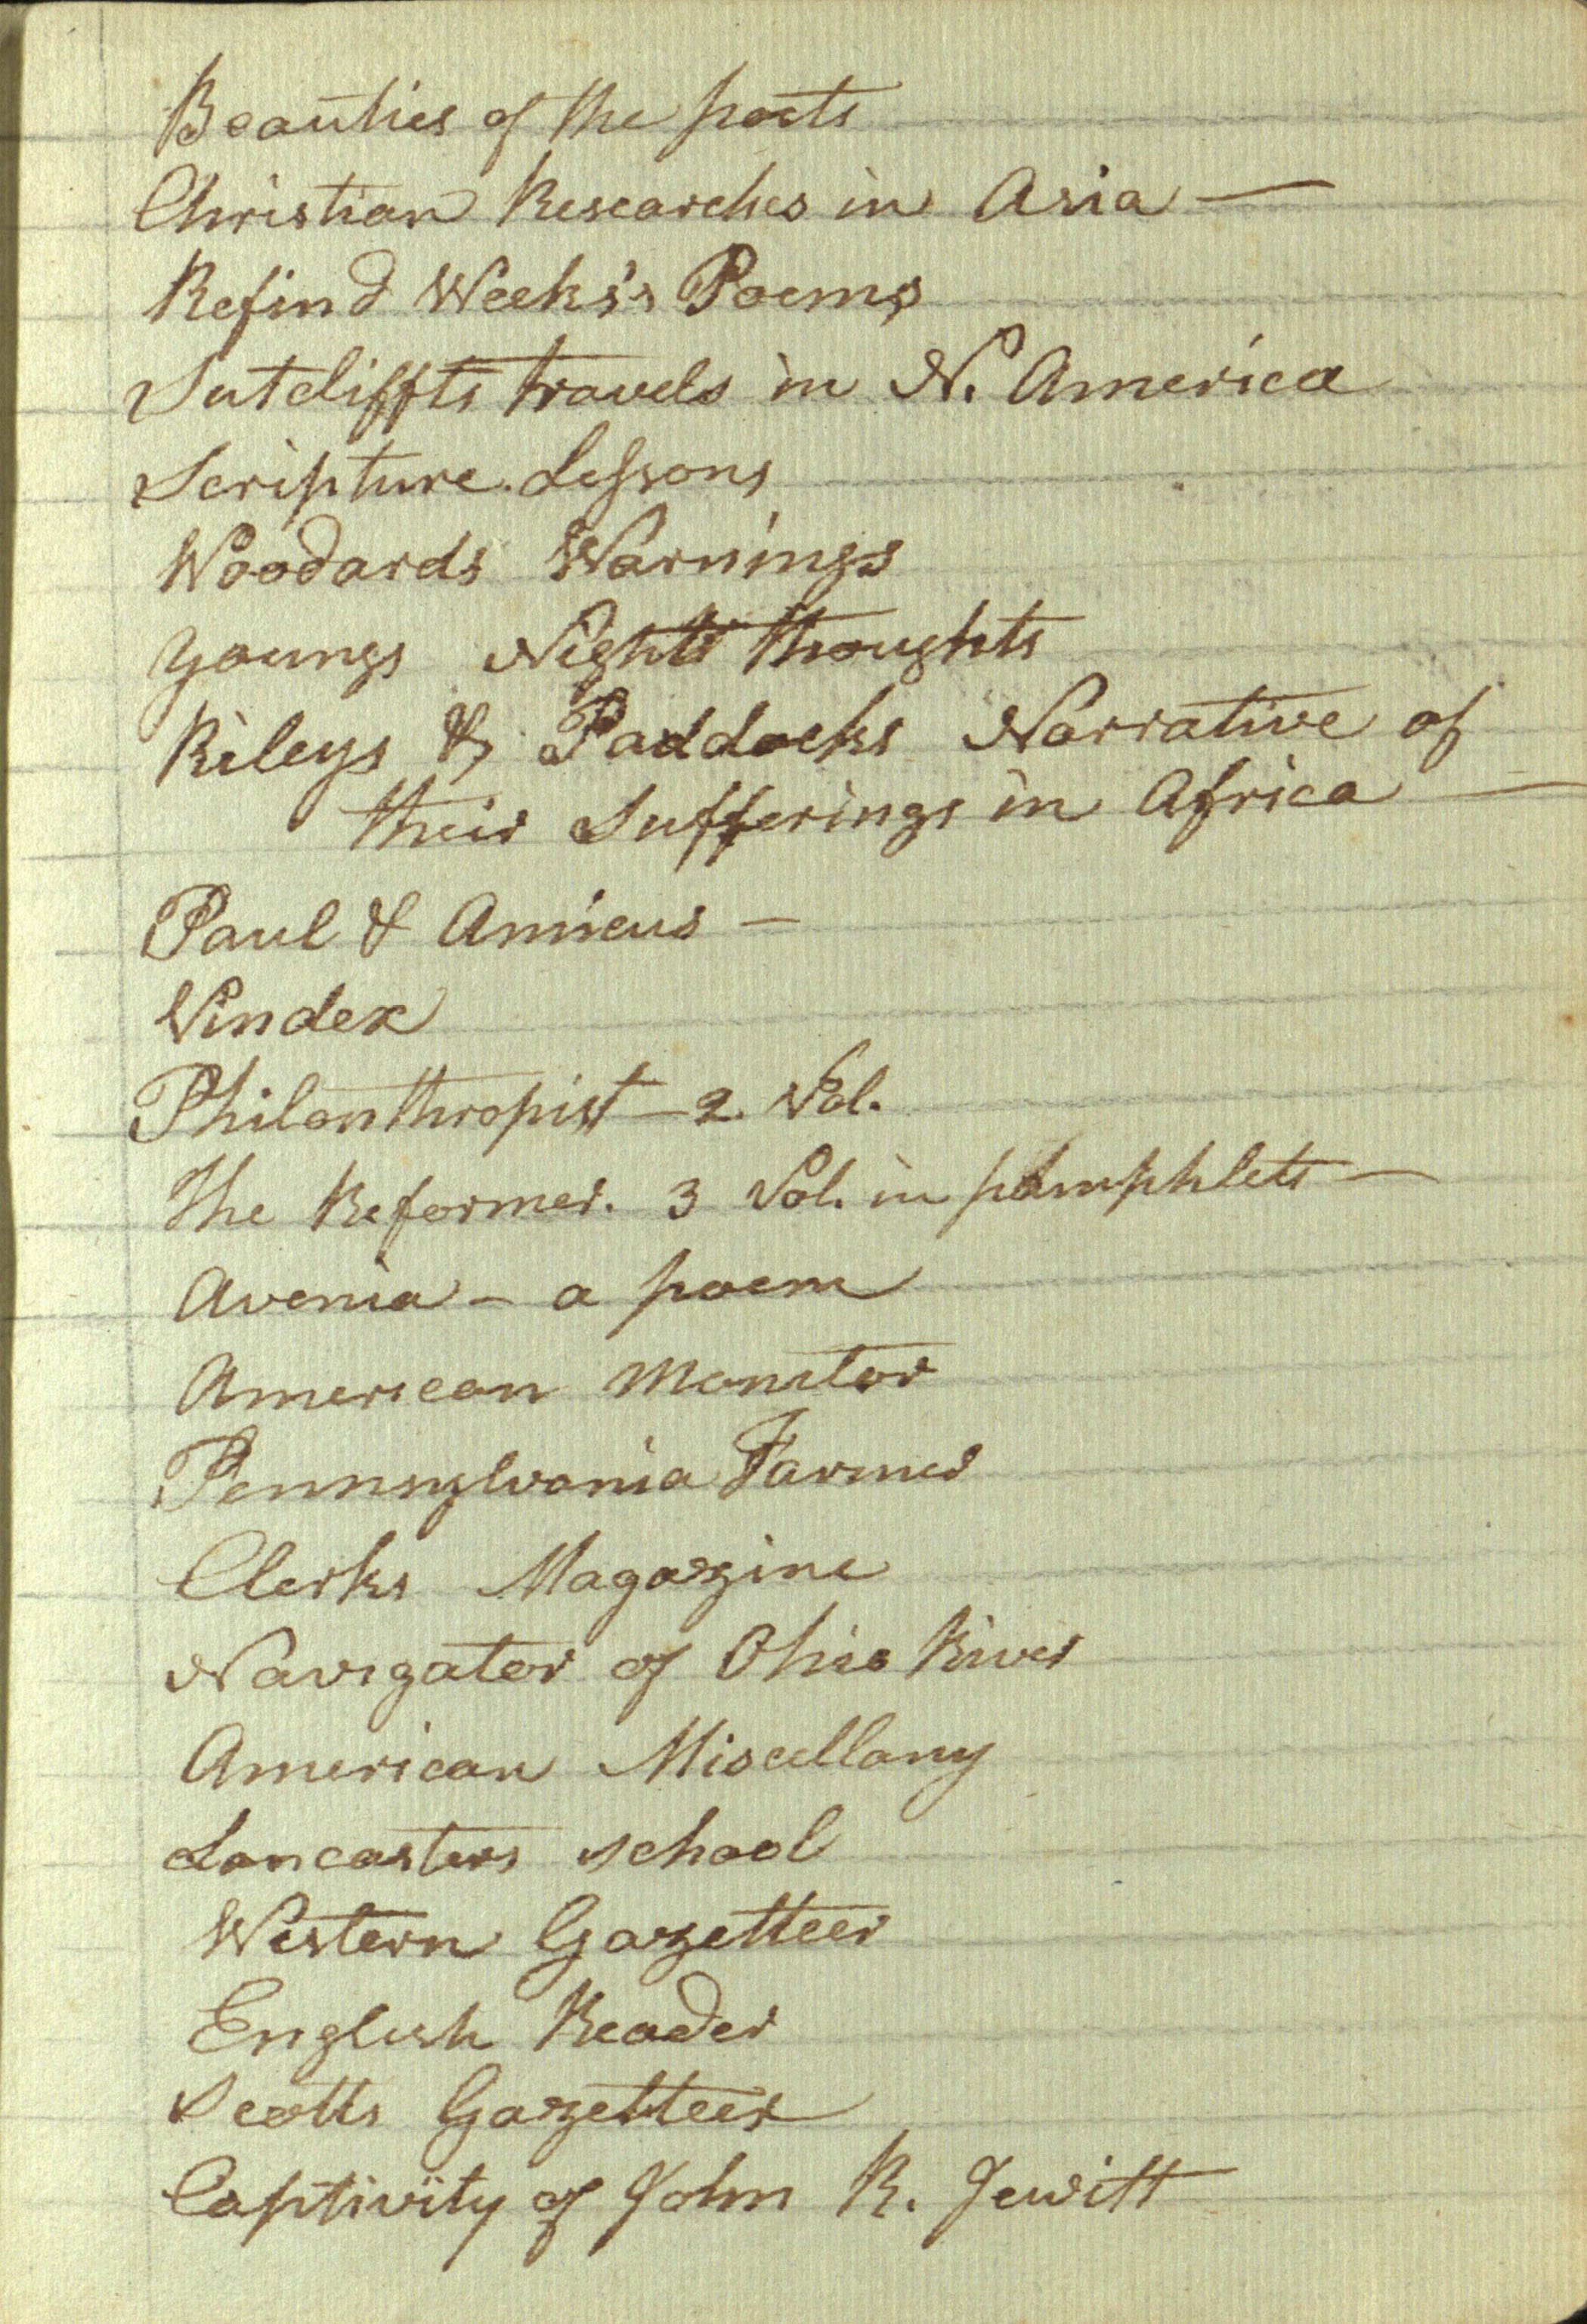 Beauties of the poets
Christian Researches in Asia —
Refind Weeks's Poems
Sutcliffts travels in N. America
Scripture Lessons
Woodards Warnings
Youngs Night thoughts
Rileys & Paddocks Narrative of
their Sufferings in Africa —
Paul & Amicus —
Vindex
Philanthropist — 2. Vol.
The Reformer. 3 Vol. in pamphlets —
Avenia — a poem
American Monitor
Pennsylvania Farmer
Clerks Magazine
Navigator of Ohio River
American Miscellany
Lancasters school
Western Gazetteer
English Reader
Scotts Gazetteer
Captivity of John R. Jewitt